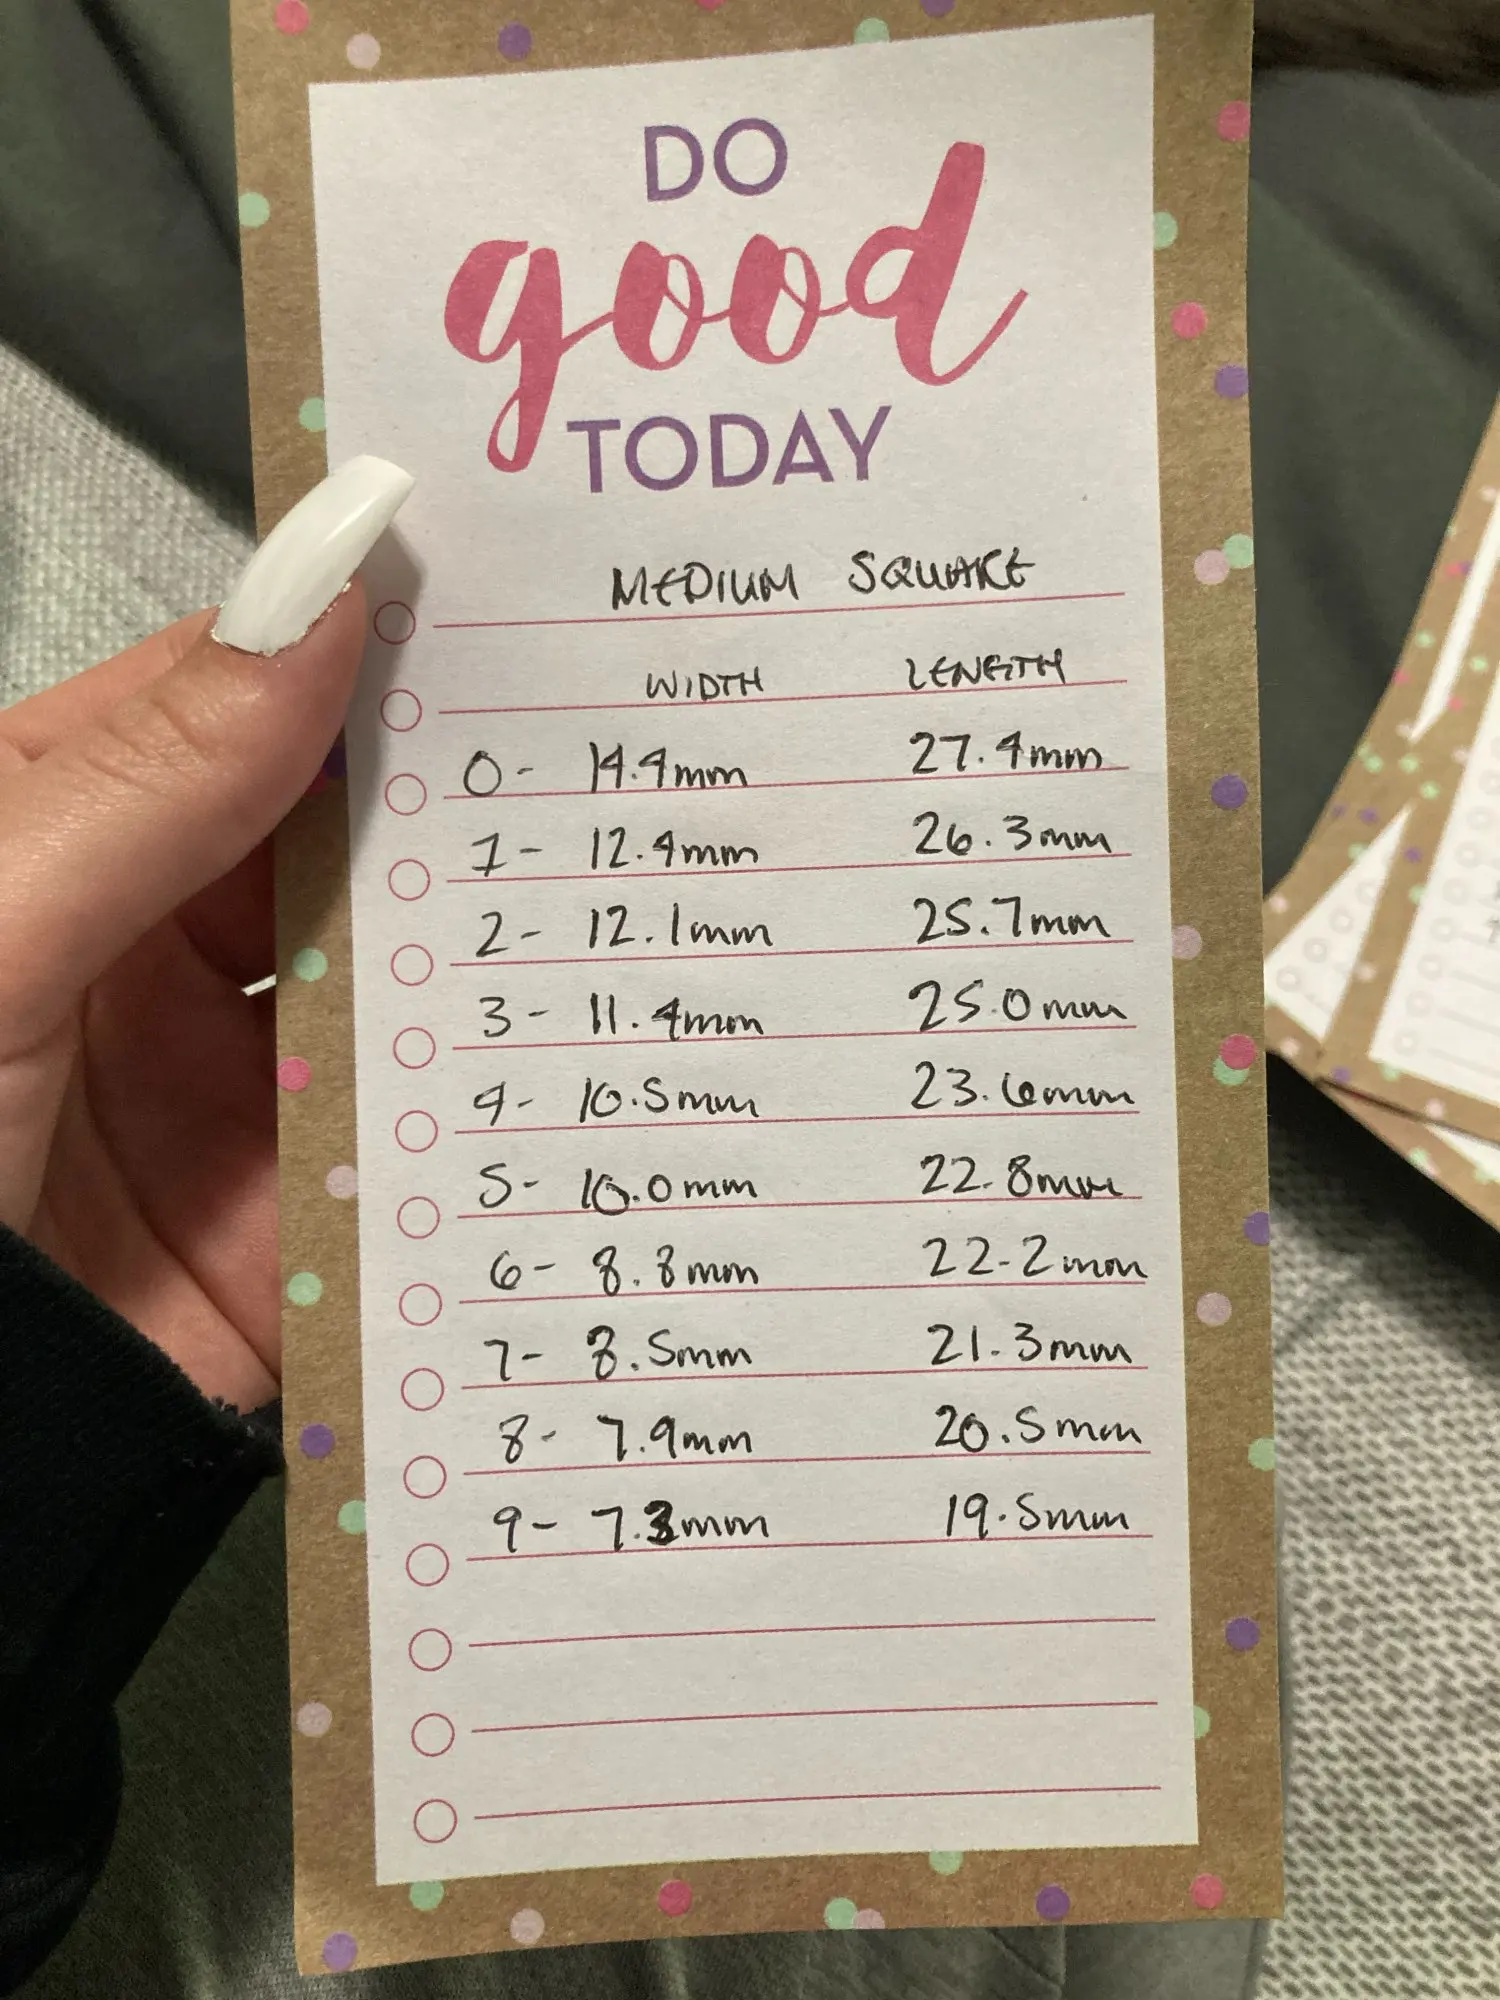 DO
good
TODAY
MEDIUM SQUARE
WIDTH LENGTH
0- 14.4mm 27.4mm
1- 12.4mm 26.3mm
2- 12.1mm 25.7mm
3- 11.4mm 25.0mm
4- 10.5mm 23.6mm
5- 10.0mm 22.8mm
6- 8.8mm 22.2mm
7- 8.5mm 21.3mm
8- 7.9mm 20.5mm
9- 7.3mm 19.5mm